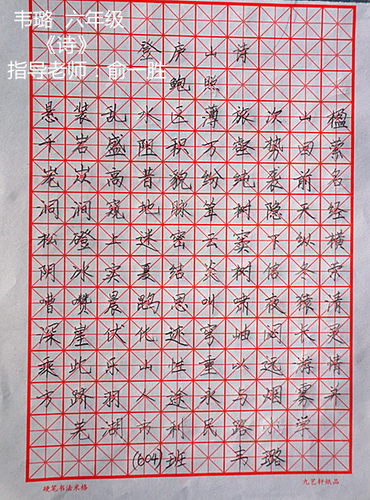 韦璐 六年级
《诗》
指导老师:俞一胜
登庐山诗
鲍照
悬装乱水区薄旅次山楹
千岩盛阻积万壑势回萦
高昔貌纷纯袭前名
洞涧窥地脉耸树隐天经
松磴上迷密云窦下纵横
阴冰实夏结炎树信冬荣
嘈囋晨鹍思叫啸夜猿清
深崖伏化迹穹岫閟长灵
乘此乐山性重以远游情
方跻羽人途永与烟雾并
芜湖市利民路小学
(604)班 韦璐
硬笔书法米格 九艺轩纸品